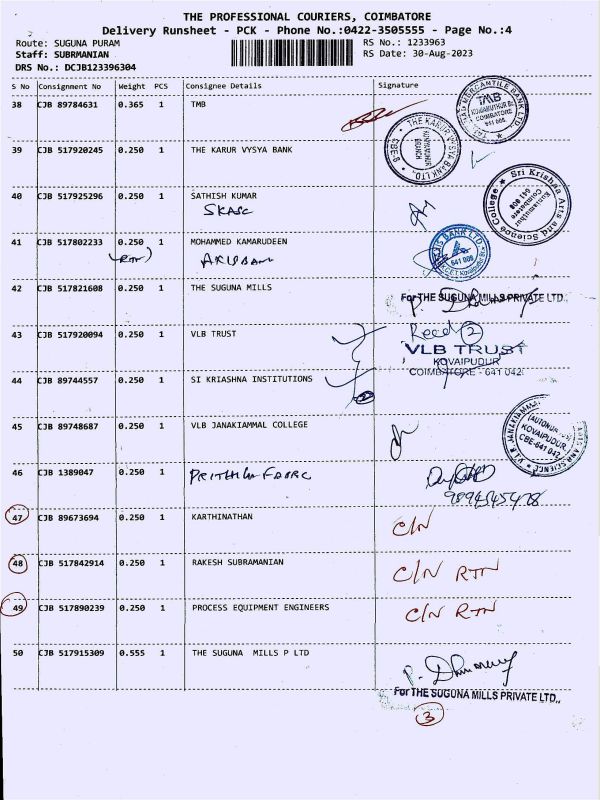 THE PROFESSIONAL COURIERS, COIMBATORE
Delivery Runsheet - PCK - Phone No.:0422-3505555 - Page No.:4
Route: SUGUNA PURAM RS No.: 1233963
Staff: SUBRMANIAN RS Date: 30-Aug-2023
DRS No.: DCJB123396304
S No Consignment No Weight PCS Consignee Details Signature
38 CJB 89784631 0.365 1 TMB
TMB
COIMBATORE
39 CJB 517920245 0.250 1 THE KARUR VYSYA BANK
THE KARUR VYSYA BANK LTD.,
BRANCH
40 CJB 517925296 0.250 1 SATHISH KUMAR
SKASC
Sri Krishna Arts and Science College
Kuniamuthur
Coimbatore
641 008
41 CJB 517802233 0.250 1 MOHAMMED KAMARUDEEN
AXIS BANK LTD
641 008
42 CJB 517821608 0.250 1 THE SUGUNA MILLS
For THE SUGUNA MILLS PRIVATE LTD.,
43 CJB 517920094 0.250 1 VLB TRUST
Recd 2
VLB TRUST
KOVAIPUDUR
COIMBATORE - 641 042
44 CJB 89744557 0.250 1 SI KRIASHNA INSTITUTIONS
45 CJB 89748687 0.250 1 VLB JANAKIAMMAL COLLEGE
V.L.B. JANAKIAMMAL ARTS AND SCIENCE
(AUTONOMOUS)
KOVAIPUDUR,
CBE-641 042.
46 CJB 1389047 0.250 1
47 CJB 89673694 0.250 1 KARTHINATHAN C/N
48 CJB 517842914 0.250 1 RAKESH SUBRAMANIAN C/N RTN
49 CJB 517890239 0.250 1 PROCESS EQUIPMENT ENGINEERS C/N RTN
50 CJB 517915309 0.555 1 THE SUGUNA MILLS P LTD
For THE SUGUNA MILLS PRIVATE LTD.,
3